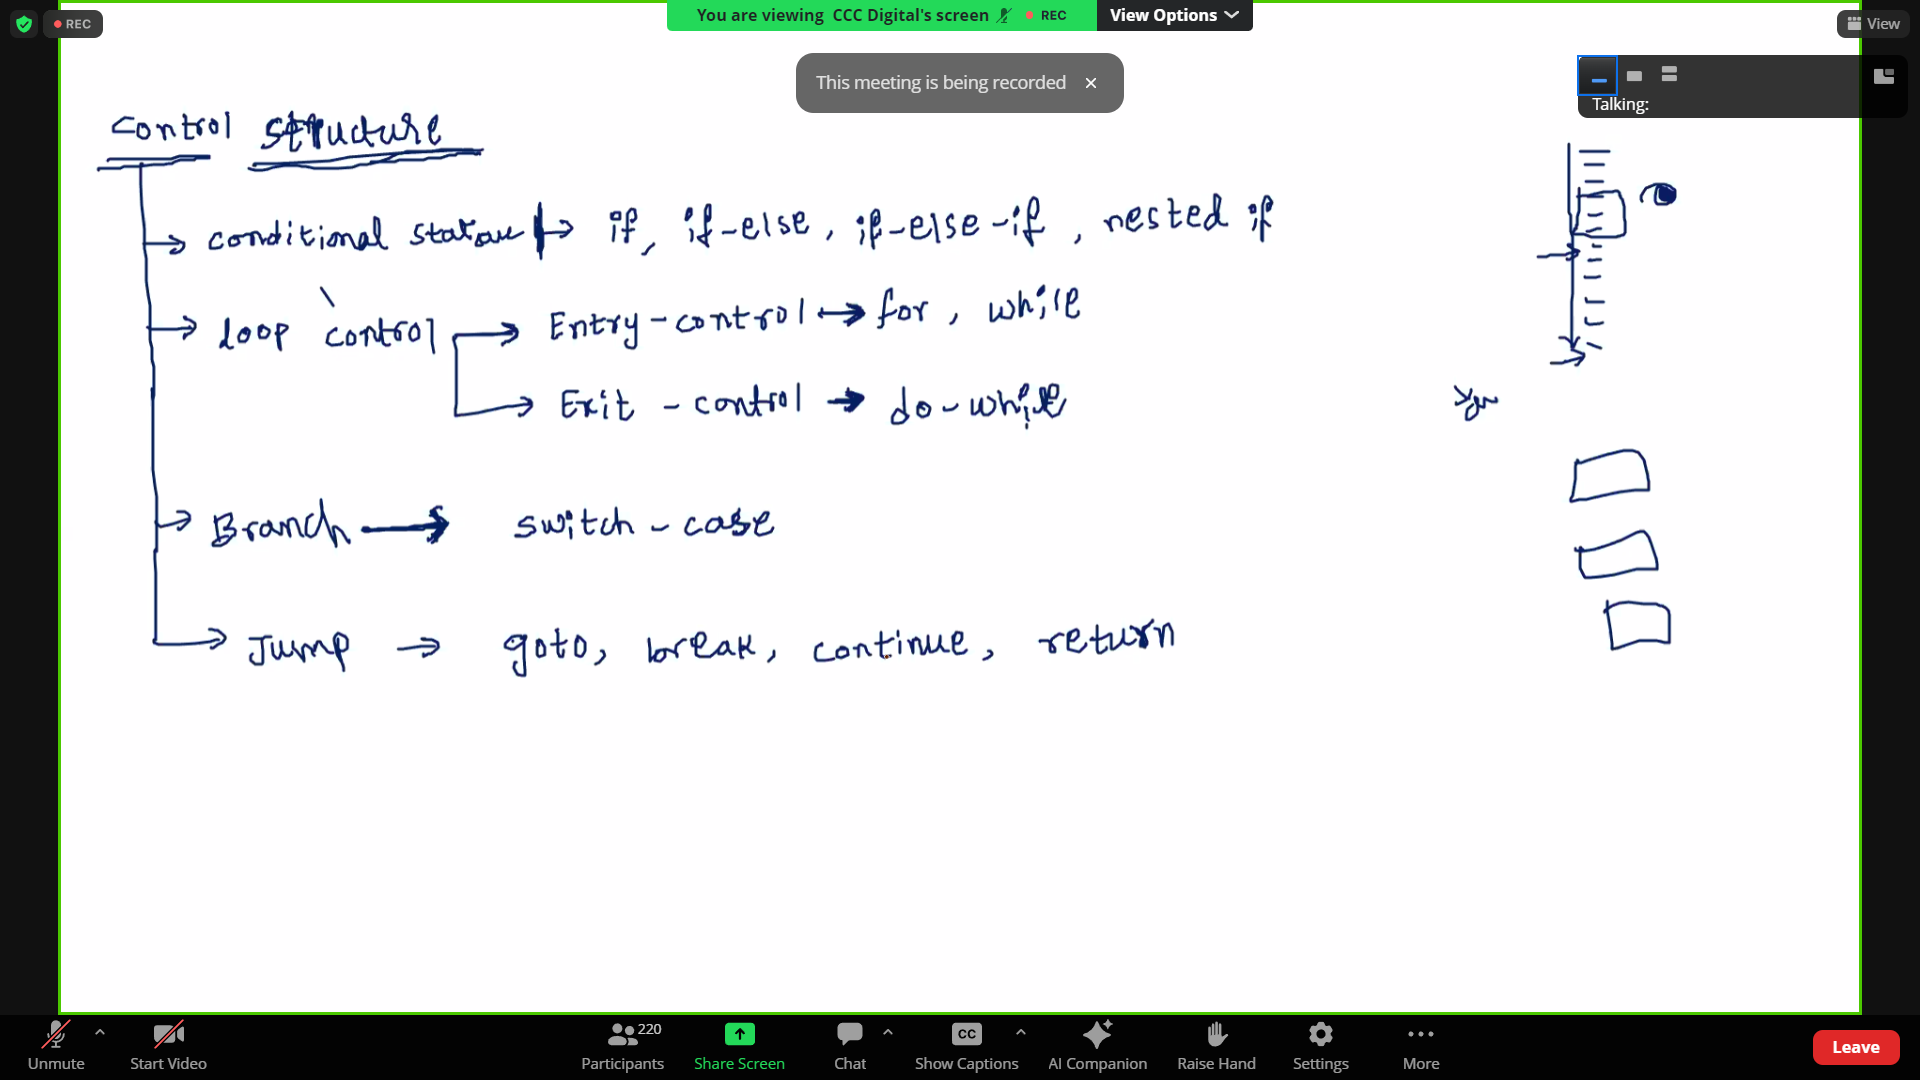 REC
You are viewing CCC Digital's screen REC View Options
View
This meeting is being recorded
Talking:
Control Structure
conditional → if, if-else, if-else-if, nested if
loop control → Entry-control → for, while
→ Exit-control → do-while
Branch → switch-case
Jump → goto, break, continue, return
Unmute Start Video 220 Participants Share Screen Chat CC Show Captions AI Companion Raise Hand Settings More Leave